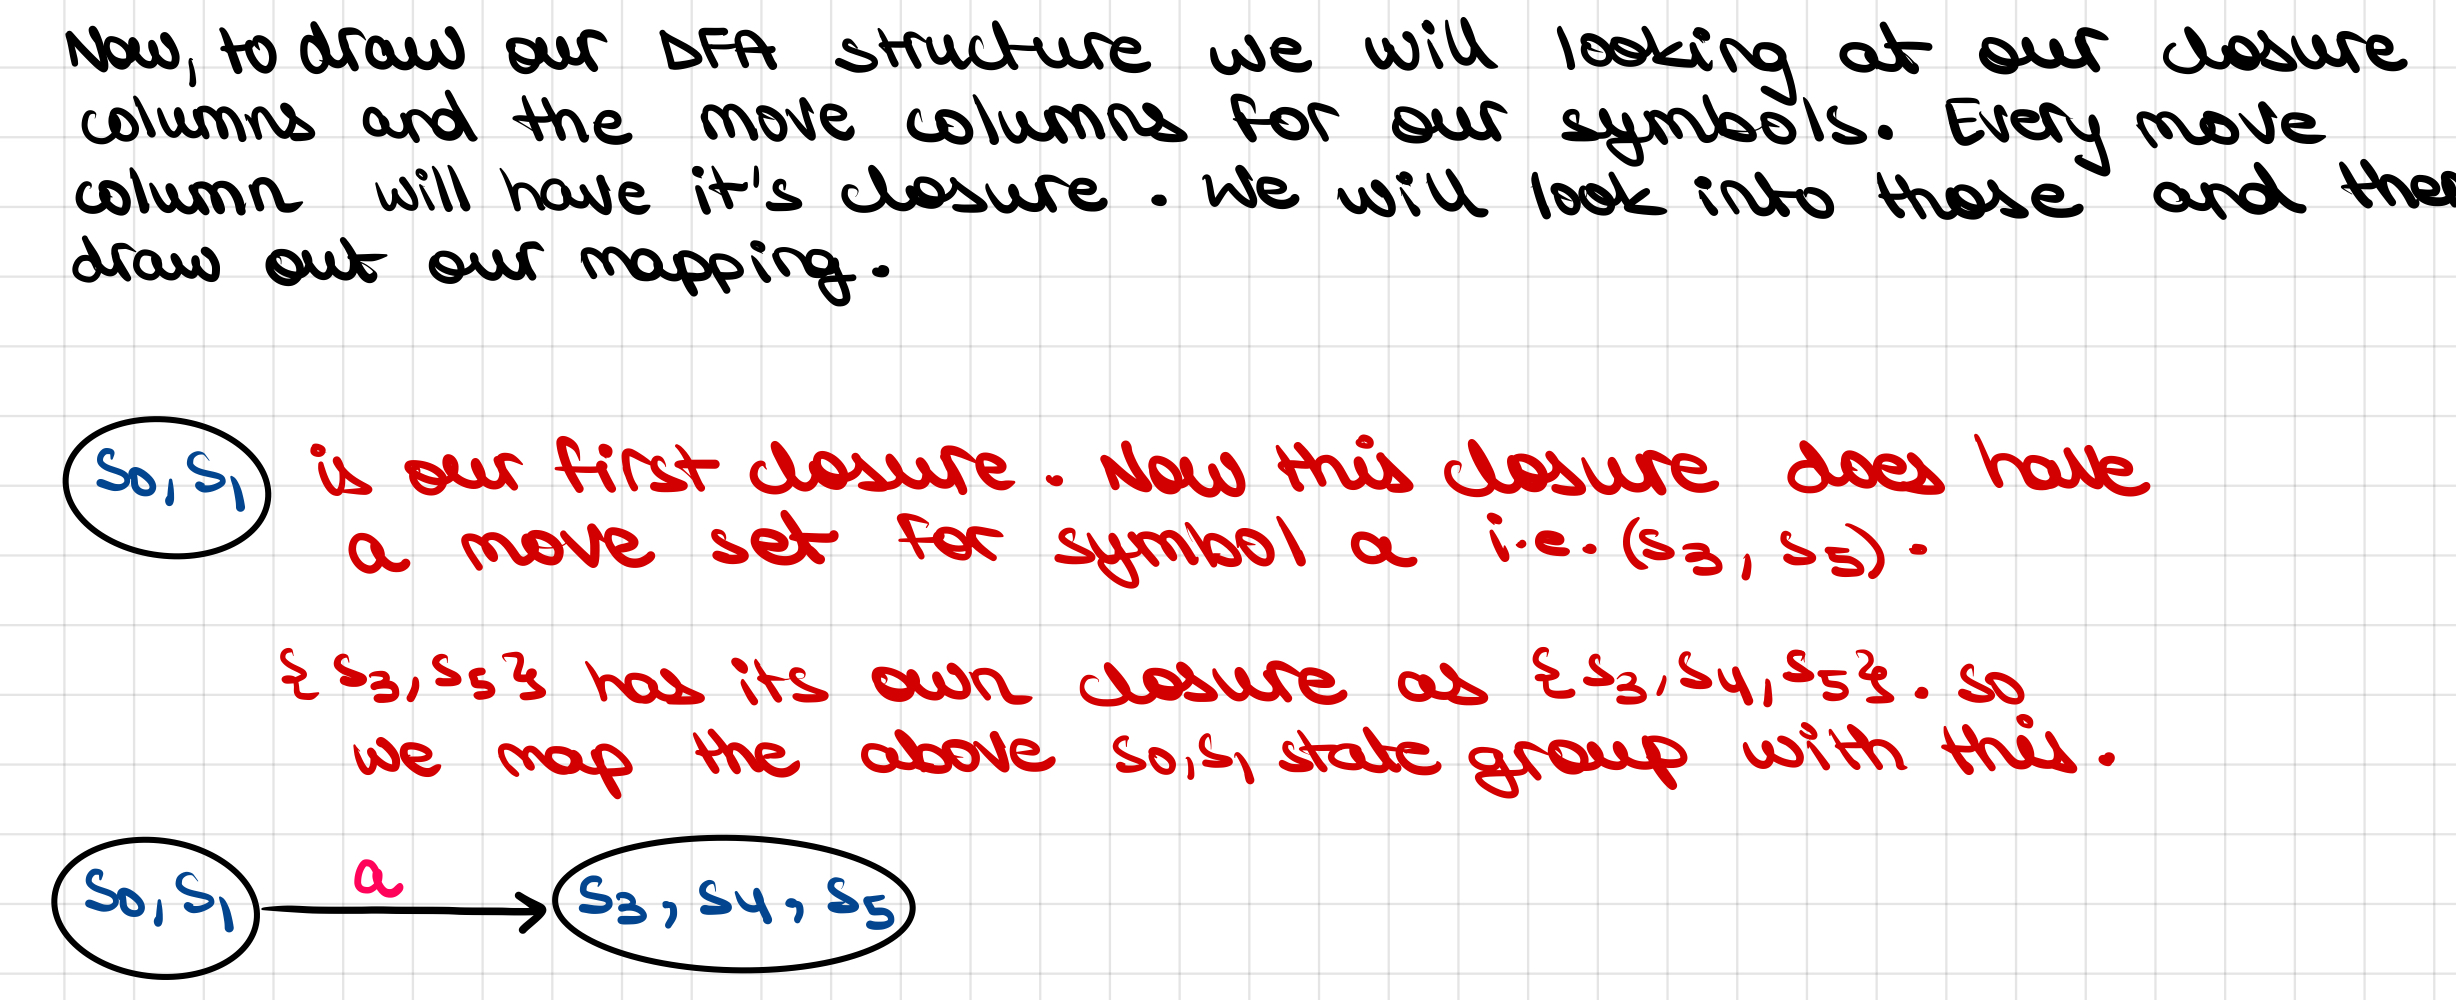 Now, to draw our DFA structure we will looking at our closure
columns and the move columns for our symbols. Every move
column will have it's closure. We will look into those and then
draw out our mapping.
S0, S1 is our first closure. Now this closure does have
a move set for symbol a i.e. (S3, S5).
{S3, S5} has its own closure as {S3, S4, S5}. So
we map the above S0, S1 state group with this.
S0, S1 a S3, S4, S5